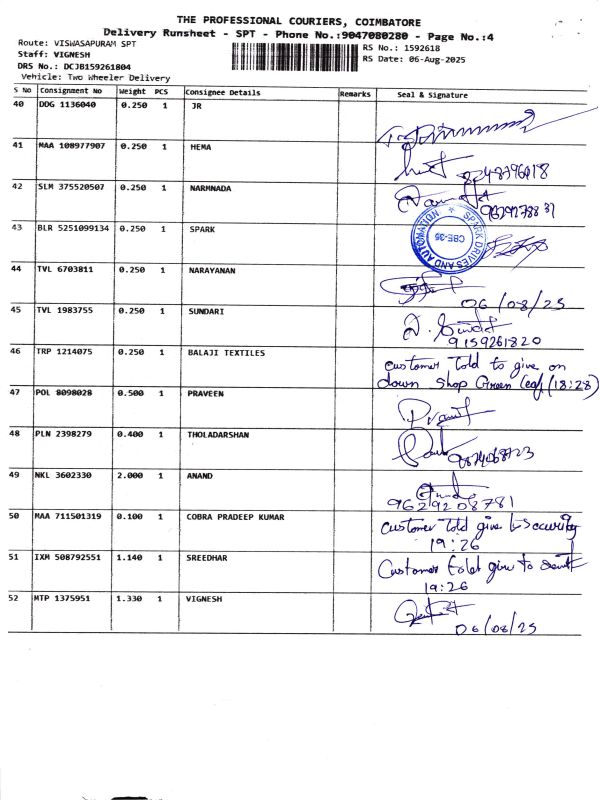 THE PROFESSIONAL COURIERS, COIMBATORE
Delivery Runsheet - SPT - Phone No.:9047080280 - Page No.:4
Route: VISWASAPURAM SPT
Staff: VIGNESH
DRS No.: DCJB159261804
Vehicle: Two Wheeler Delivery
RS No.: 1592618
RS Date: 06-Aug-2025
S No Consignment No Weight PCS Consignee Details Remarks Seal & Signature
40 DDG 1136040 0.250 1 JR
41 MAA 108977907 0.250 1 HEMA
42 SLM 375520507 0.250 1 NARMNADA
43 BLR 5251099134 0.250 1 SPARK
SPARK DRIVES AND AUTOMATION
CBE-35
44 TVL 6703811 0.250 1 NARAYANAN
06/08/25
45 TVL 1983755 0.250 1 SUNDARI
9159261820
46 TRP 1214075 0.250 1 BALAJI TEXTILES
customer told to give on
down shop Green (18:28)
47 POL 8098028 0.500 1 PRAVEEN
48 PLN 2398279 0.400 1 THOLADARSHAN
49 NKL 3602330 2.000 1 ANAND
9629208781
50 MAA 711501319 0.100 1 COBRA PRADEEP KUMAR
customer told give to security
19:26
51 IXM 508792551 1.140 1 SREEDHAR
Customer give to
19:26
52 MTP 1375951 1.330 1 VIGNESH
06/08/25